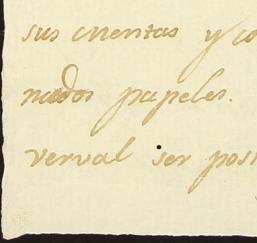 sus cuentas y co
nados papeles.
verval ser post